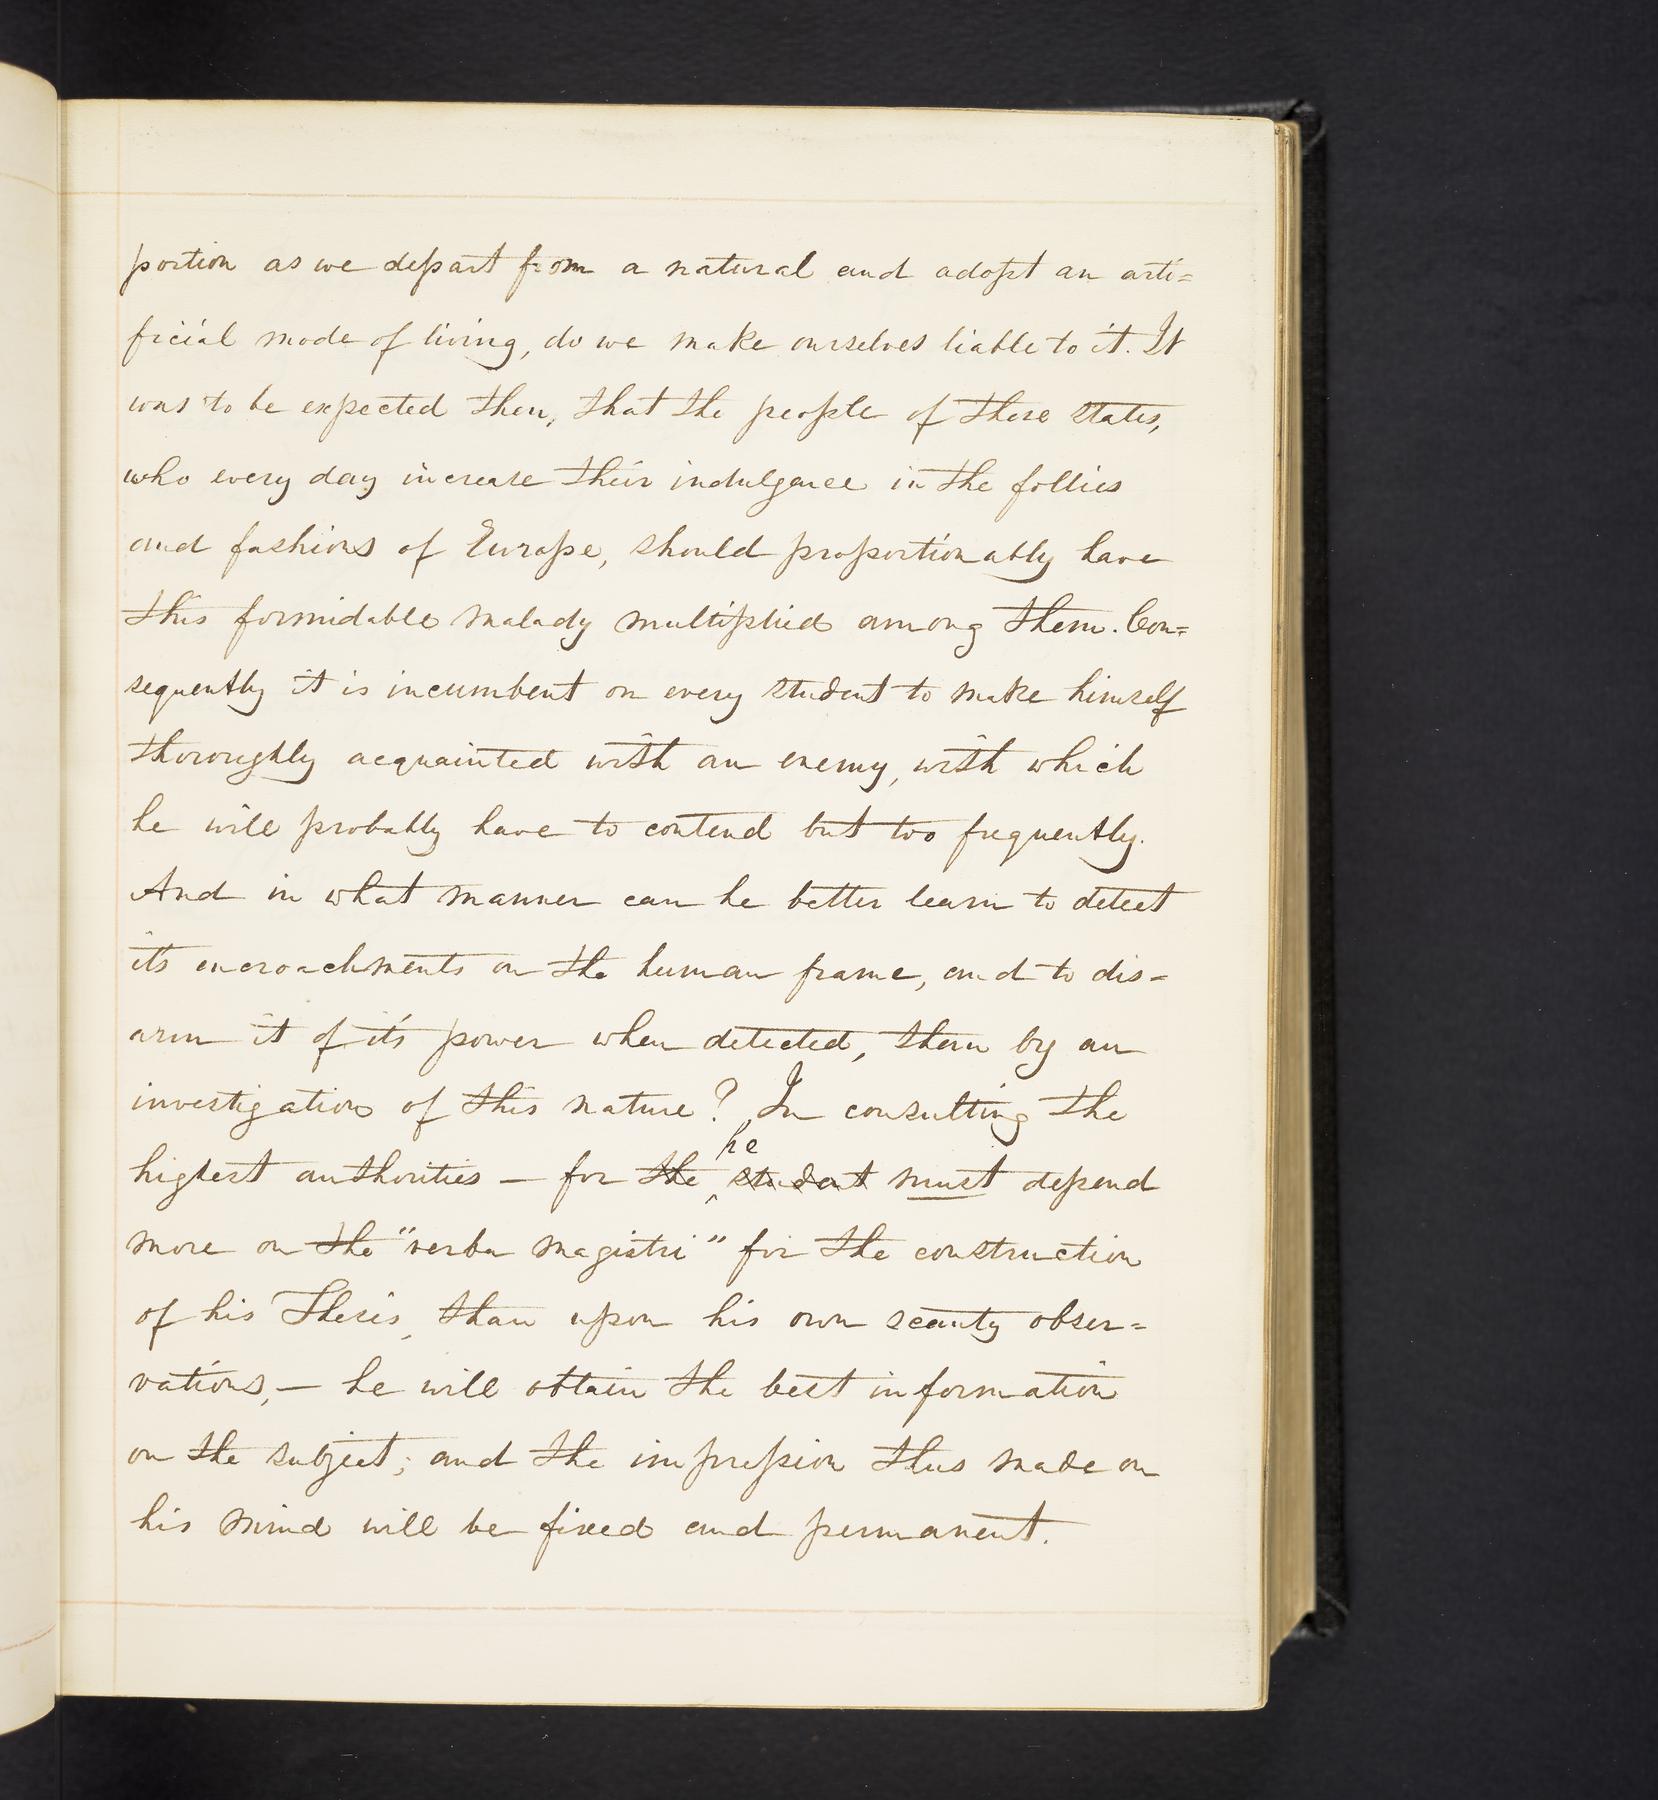 portion as we depart from a natural and adopt an arti=
ficial mode of living, do we make ourselves liable to it. It
was to be expected then, that the people of these states,
who every day increase their indulgence in the follies
and fashions of Europe, should proportionably have
this formidable malady multiplied among them. Con=
sequently it is incumbent on every student to make himself
thoroughly acquainted with an enemy, with which
he will probably have to contend but too frequently.
And in what manner can he better learn to detect
its encroachments on the human frame, and to dis=
arm it of it's power when detected, than by an
investigation of this nature? In consulting the
he
highest authorities — for the student must depend
more on the "verba magistri" for the construction
of his Thesis, than upon his own scanty obser=
vations, — he will obtain the best information
on the subject; and the impression thus made on
his mind will be fixed and permanent.